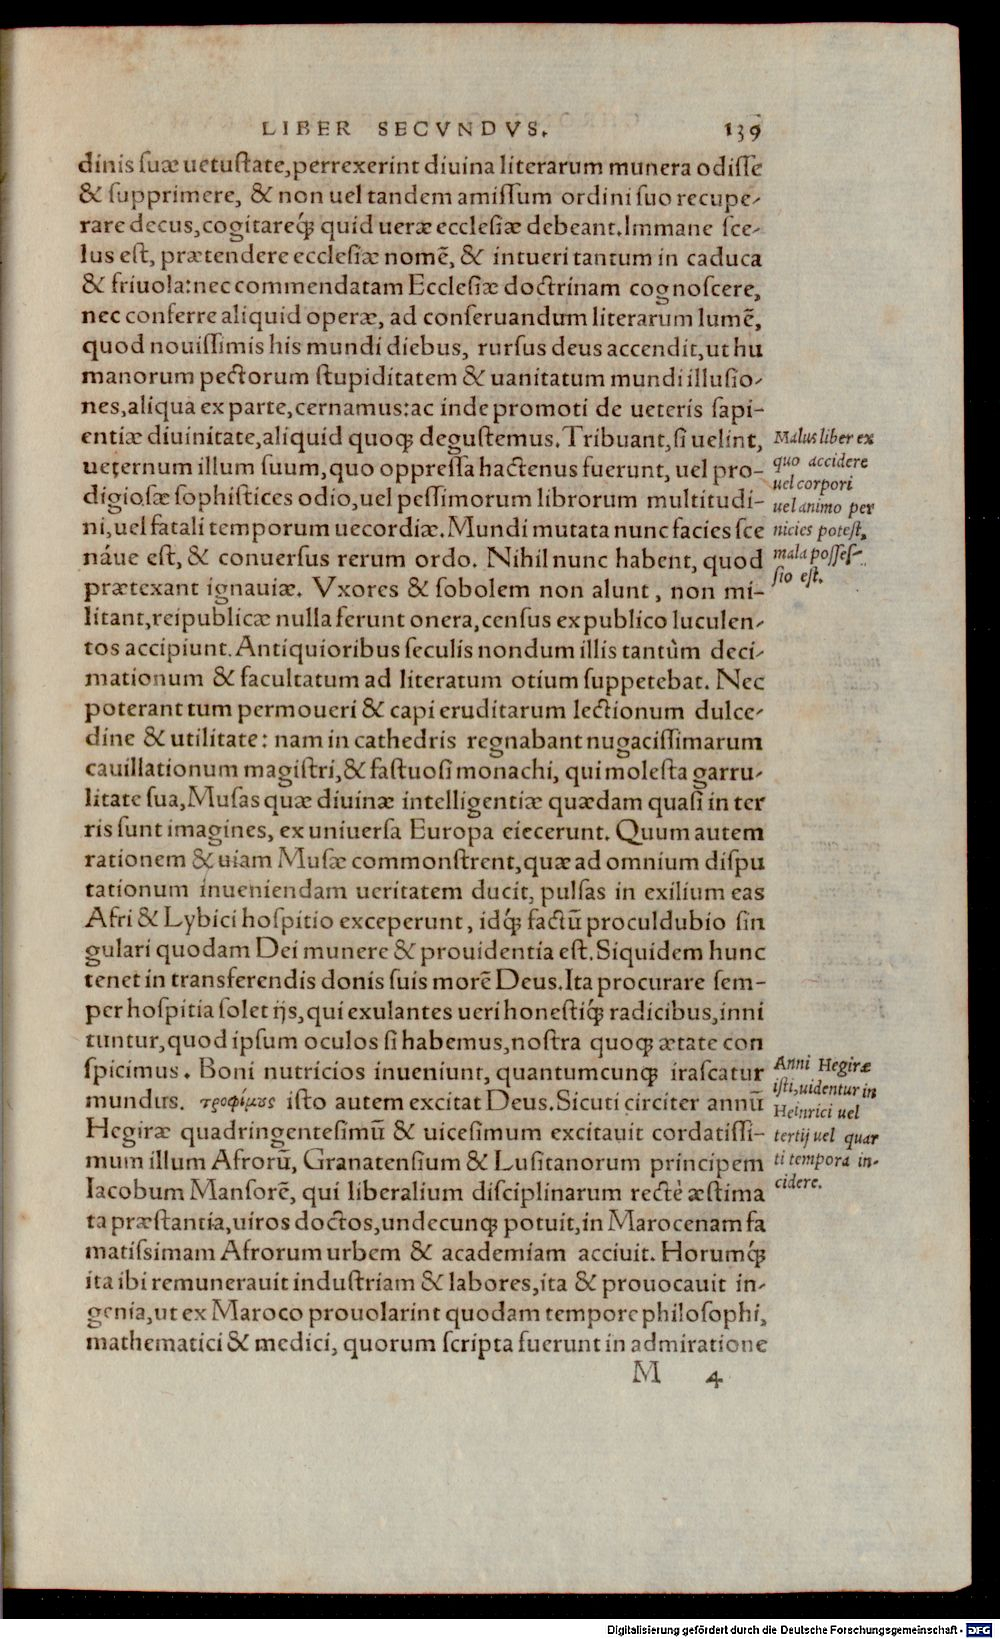 LIBER SECVNDVS. 139
dinis suæ uetustate, perrexerint diuina literarum munera odisse
& supprimere, & non uel tandem amissum ordini suo recupe-
rare decus, cogitareq́; quid ueræ ecclesiæ debeant. Immane sce-
lus est, prætendere ecclesiæ nomē, & intueri tantum in caduca
& friuola: nec commendatam Ecclesiæ doctrinam cognoscere,
nec conferre aliquid operæ, ad conseruandum literarum lumē,
quod nouissimis his mundi diebus, rursus deus accendit, ut hu
manorum pectorum stupiditatem & uanitatum mundi illusio-
nes, aliqua ex parte, cernamus: ac inde promoti de ueteris sapi-
entiæ diuinitate, aliquid quoq; degustemus. Tribuant, si uelint,
ueternum illum suum, quo oppressa hactenus fuerunt, uel pro-
digiosæ sophistices odio, uel pessimorum librorum multitudi-
ni, uel fatali temporum uecordiæ. Mundi mutata nunc facies sce
náue est, & conuersus rerum ordo. Nihil nunc habent, quod
prætexant ignauiæ. Vxores & sobolem non alunt, non mi-
litant, reipublicæ nulla ferunt onera, census ex publico luculen-
tos accipiunt. Antiquioribus seculis nondum illis tantùm deci-
mationum & facultatum ad literatum otium suppetebat. Nec
poterant tum permoueri & capi eruditarum lectionum dulce-
dine & utilitate: nam in cathedris regnabant nugacissimarum
cauillationum magistri, & fastuosi monachi, qui molesta garru-
litate sua, Musas quæ diuinæ intelligentiæ quædam quasi in ter
ris sunt imagines, ex uniuersa Europa eiecerunt. Quum autem
rationem & uiam Musæ commonstrent, quæ ad omnium dispu
tationum inueniendam ueritatem ducit, pulsas in exilium eas
Afri & Lybici hospitio exceperunt, idq́; factū proculdubio sin
gulari quodam Dei munere & prouidentia est. Siquidem hunc
tenet in transferendis donis suis morē Deus. Ita procurare sem-
per hospitia solet ijs, qui exulantes ueri honestiq́; radicibus, inni
tuntur, quod ipsum oculos si habemus, nostra quoq; ætate con
spicimus. Boni nutricios inueniunt, quantumcunq; irascatur
mundus. τροφίμους isto autem excitat Deus. Sicuti circiter annū
Hegiræ quadringentesimū & uicesimum excitauit cordatissi-
mum illum Afrorū, Granatensium & Lusitanorum principem
Iacobum Mansorē, qui liberalium disciplinarum rectè æstima
ta præstantia, uiros doctos, undecunq; potuit, in Marocenam fa
matissimam Afrorum urbem & academiam acciuit. Horumq́;
ita ibi remunerauit industriam & labores, ita & prouocauit in-
genia, ut ex Maroco prouolarint quodam tempore philosophi,
mathematici & medici, quorum scripta fuerunt in admiratione
M 4
Malus liber ex
quo accidere
uel corpori
uel animo per
nicies potest,
mala posses-
sio est.
Anni Hegiræ
isti, uidentur in
Heinrici uel
tertij uel quar
ti tempora in-
cidere.
Digitalisierung gefördert durch die Deutsche Forschungsgemeinschaft - DFG